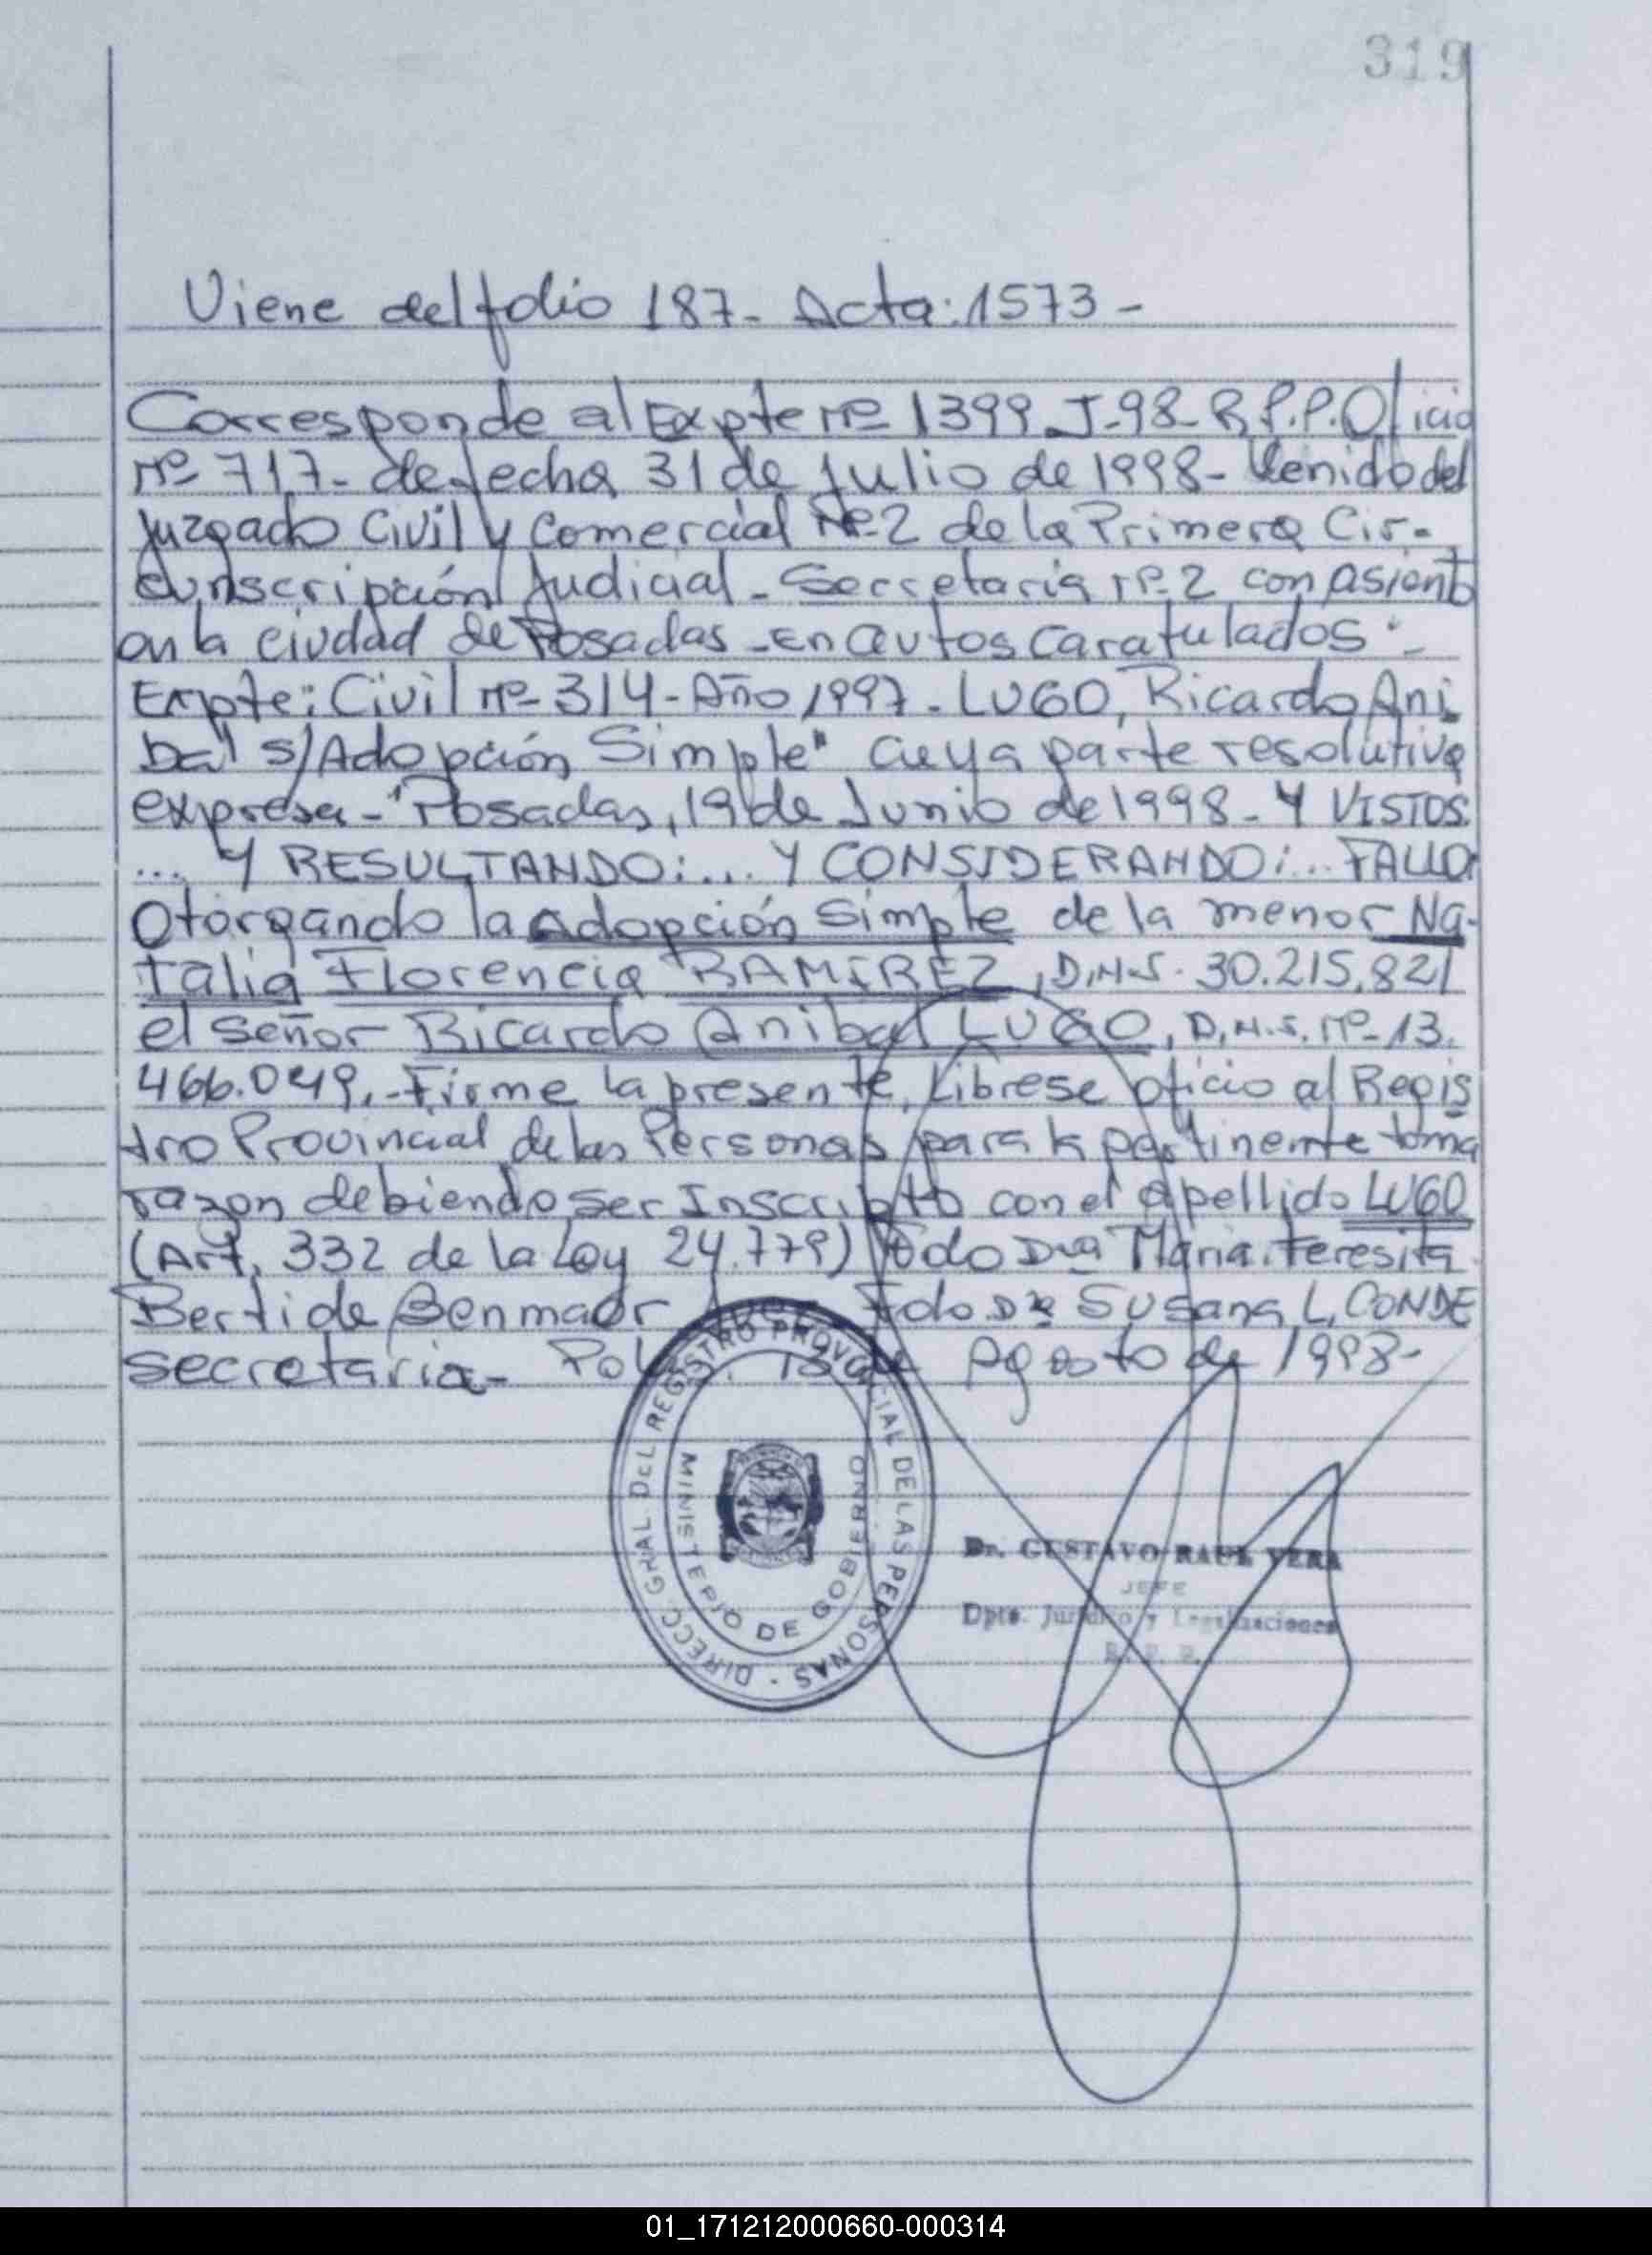 319
Viene del folio 187- Acta: 1573-
Corresponde al Expte Nº 1399 J-98- R.P.P. Oficio
Nº 717- de fecha 31 de Julio de 1998- Venido del
Juzgado Civil y Comercial Nº-2 de la Primera Cir-
cunscripción Judicial - Secretaria Nº-2 con asiento
en la ciudad de Posadas - En autos caratulados:-
Expte: Civil Nº-314- Año 1997- LUGO, Ricardo Aní
bal s/Adopción Simple" cuya parte resolutiva
expresa- "Posadas, 19 de Junio de 1998- Y VISTOS:
... Y RESULTANDO:... Y CONSIDERANDO:... FALLO:
Otorgando la adopción simple de la menor Na-
talia Florencia RAMIREZ, D.N.I. 30.215.821
el señor Ricardo Anibal LUGO, D.N.I. Nº-13.
466.049.- Firme la presente, Librese oficio al Regis
tro Provincial de las Personas para la pertinente toma
razon debiendo ser Inscripto con el apellido LUGO
(Art. 332 de la Ley 24.779) Fdo Dra Maria Teresita
Berti de Benmaor Fdo Dra Susana L. CONDE
secretaria- de Agosto de 1998-
DIRECC. GRAL DEL REGISTRO PROVINCIAL DE LAS PERSONAS -
MINISTERIO DE GOBIERNO
Dr. GUSTAVO RAUL VERA
JEFE
Dpto. Jurídico y Legalizaciones
R. P. P.
01_171212000660-000314